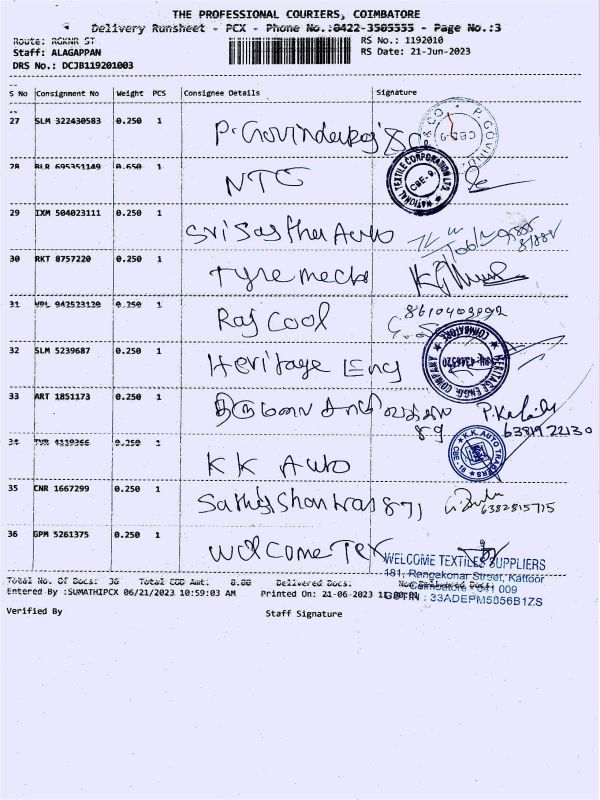 THE PROFESSIONAL COURIERS, COIMBATORE
Delivery Runsheet - PCX - Phone No.:0422-3505555 - Page No.:3
Route: RGKNR ST
RS No.: 1192010
Staff: ALAGAPPAN
RS Date: 21-Jun-2023
DRS No.: DCJB119201003
S No Consignment No Weight PCS Consignee Details Signature
27 SLM 322430583 0.250 1 P. Govindaraj
P. GOVIND & CO
CBE-9
28 BLR 695351149 0.650 1 NTC
NATIONAL TEXTILE CORPORATION LTD.
CBE-9
29 IXM 504023111 0.250 1 Sri Sastha Auto
30 RKT 8757220 0.250 1 Tyre mech
31 942523120 0.250 1 Raj Cool
8610403992
32 SLM 5239687 0.250 1 Heritage Eng
HERITAGE ENGG. COMPANY
COIMBATORE
33 ART 1851173 0.250 1 திருமலை
89
P. Kalaila
6381922130
34 TVR 4119366 0.250 1 KK Auto
K.K. AUTO TRADERS
CBE
35 CNR 1667299 0.250 1 871
6382815715
36 GPM 5261375 0.250 1 Welcome Tex
WELCOME TEXTILES SUPPLIERS
181, Rangakonar Street, Kattoor
Coimbatore - 641 009
GSTIN : 33ADEPM5856B1ZS
Total No. Of Docs: 36 Total COD Amt: 0.00 Delivered Docs: Non Delivered Docs:
Entered By :SUMATHIPCX 06/21/2023 10:59:03 AM Printed On: 21-06-2023
Verified By Staff Signature